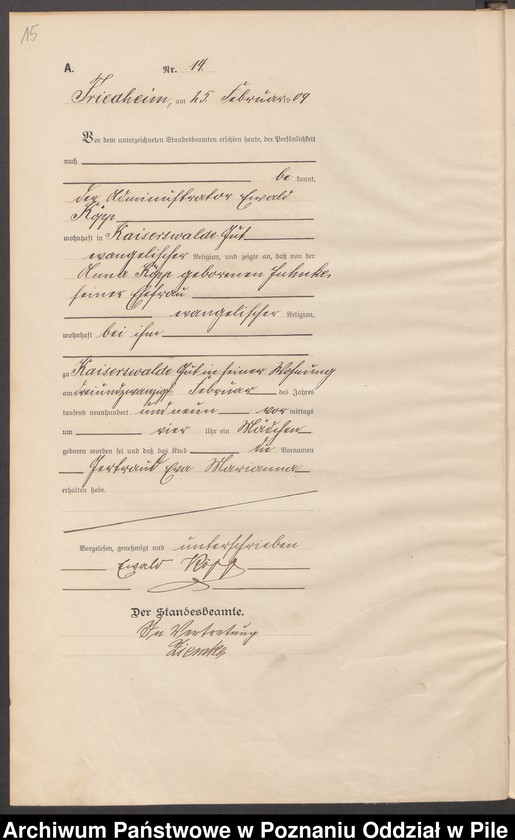 15
A.
Nr. 14.
Friedheim, am 25. Februar 1909
Vor dem unterzeichneten Standesbeamten erschien heute, der Persönlichkeit
nach
be kannt,
der Administrator Ewald
Köpp
wohnhaft in Kaiserswalde Gut
evangelischer Religion, und zeigte an, daß von der
Anna Köpp geborenen Juhnke,
seiner Ehefrau
evangelischer Religion,
wohnhaft bei ihm
zu Kaiserswalde Gut in seiner Wohnung
am dreiundzwanzigst Februar des Jahres
tausend neunhundert und neun vor mittags
um vier Uhr ein Mädchen
geboren worden sei und daß das Kind die Vornamen
Gertraud Eva Marianna
erhalten habe.
Vorgelesen, genehmigt und unterschrieben
Ewald Köpp
Der Standesbeamte.
In Vertretung
Ziemke
Archiwum Państwowe w Poznaniu Oddział w Pile